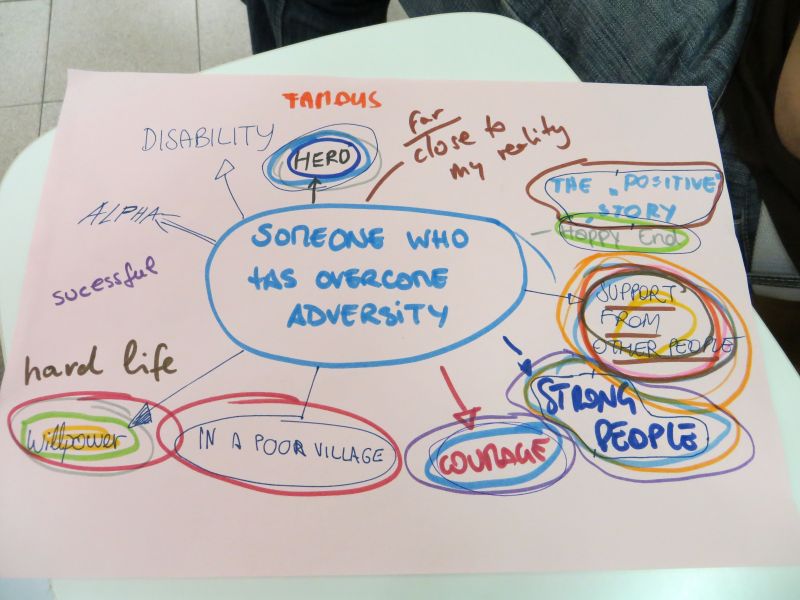 FAMOUS
DISABILITY
HERO
far
close to
my reality
THE "POSITIVE"
STORY
Happy End
ALPHA
SOMEONE WHO
HAS OVERCOME
ADVERSITY
sucessful
SUPPORT
FROM
OTHER PEOPLE
hard life
STRONG
PEOPLE
Willpower
IN A POOR VILLAGE
COURAGE